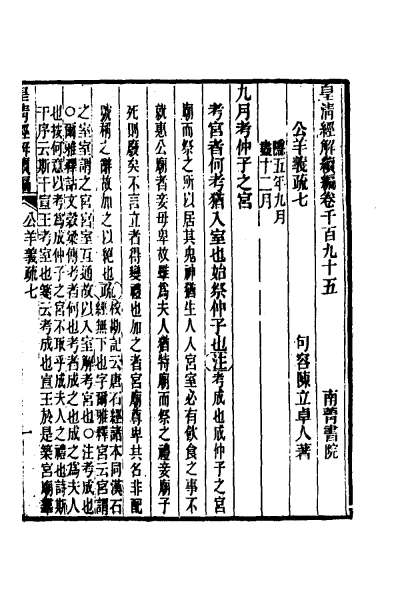 皇清經解續編卷千百九十五
南菁書院
公羊義疏七
句容陳立卓人著
隱五年九月
盡十二月
九月考仲子之宮
考宮者何考猶入室也始祭仲子也注考成也成仲子之宮
廟而祭之所以居其鬼神猶生人入宮室必有飲食之事不
就惠公廟者妾母卑故雖爲夫人猶特廟而祭之禮妾廟子
死則廢矣不言立者得變禮也加之者宮廟尊卑共名非配
號稱之辭故加之以絕也疏校勘記云唐石經諸本同漢石
經無下也字爾雅釋宮云宮謂
之室室謂之宮宮室互通故以入室解考宮也○注考成也
○爾雅釋詁文穀梁傳考者何也考者成之也成之爲夫人
也按何意以考爲成仲子之宮不取乎成夫人之禮也詩斯
干序云斯干宣王考室也箋云考成也宣王於是築宮廟羣
皇清經解續編
公羊義疏七
一